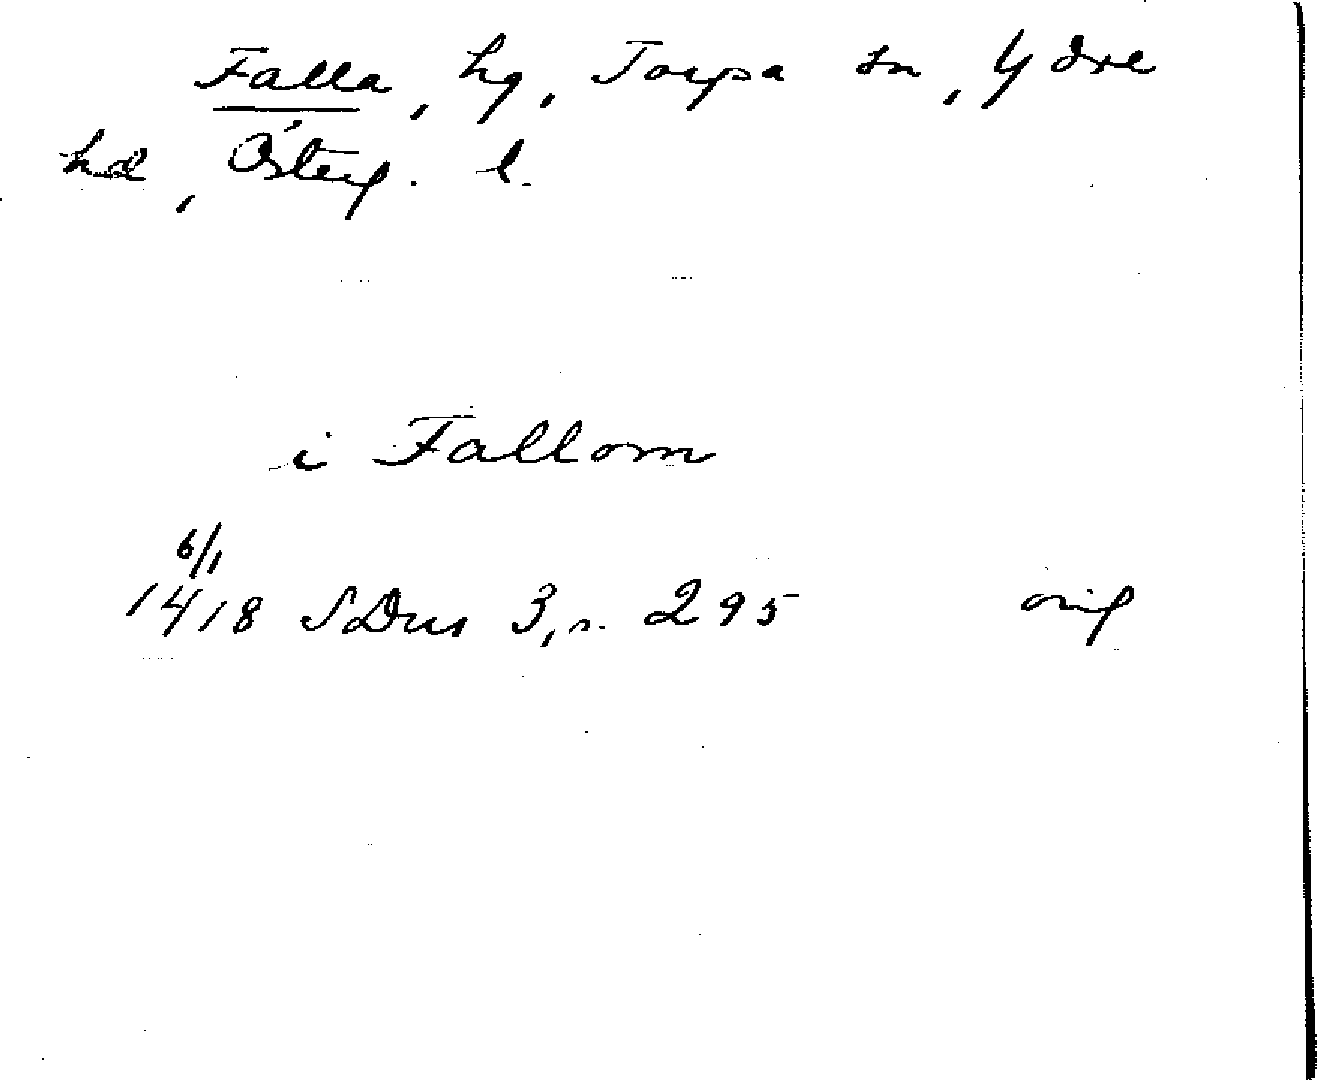 Falla, hg, Torpa sn, Ydre
hd, Österg. l.
i Fallom
6/1
1418 SDns 3, s. 295 orig